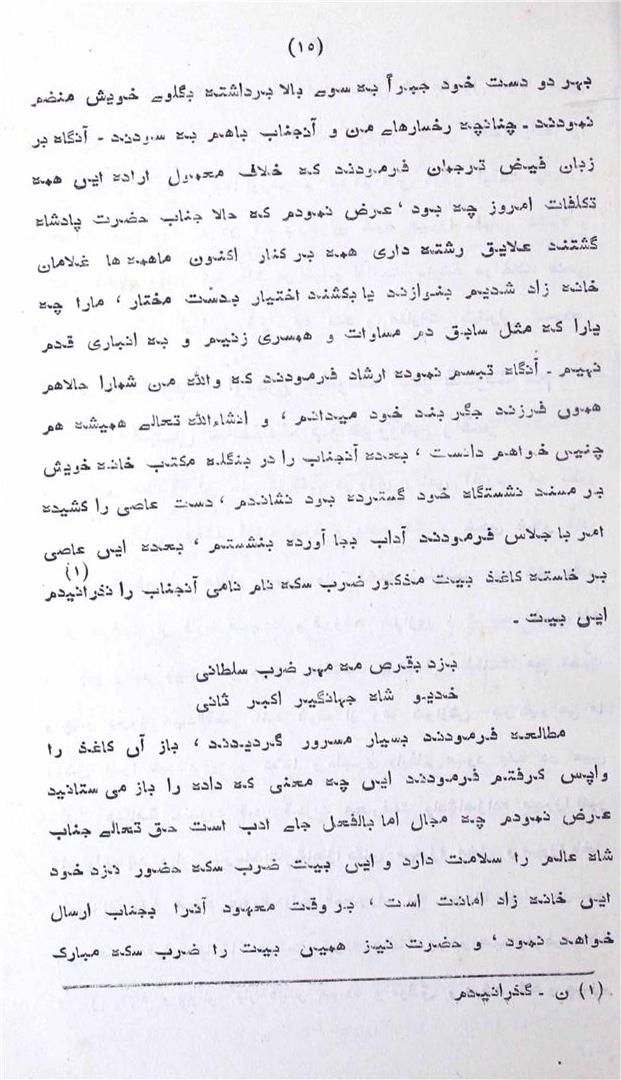 (۱۵)
بہر دو دست خود جبراً بہ سوے بالا برداشتہ بگلوے خویش منضم
نمودند ـ چنانچہ رخسارهاے من و آنجناب باهم بہ سودند ـ آنگاه بر
زبان فیض ترجمان فرمودند کہ خلاف معمول اراده ایں همہ
تکلفات امروز چہ بود ، عرض نمودم کہ حالا جناب حضرت پادشاه
گشتند علایق رشتہ داری همہ بر کنار اکنون ماهمہ ها غلامان
خانہ زاد شدیم بنوازند یا بکشند اختیار بدست مختار ، مارا چہ
یارا کہ مثل سابق دم مساوات و همسری زنیم و بہ انبازی قدم
نہیم ـ آنگاه تبسم نموده ارشاد فرمودند کہ والله من شمارا حالاهم
همون فرزند جگر بند خود میدانم ، و انشاءالله تعالے همیشہ هم
چنیں خواهم دانست ، بعده آنجناب را در بنگلہ مکتب خانہ خویش
بر مسند نشستگاه خود گسترده بود نشاندم ، دست عاصی را کشیده
امر با جلاس فرمودند آداب بجا آورده بنشستم ، بعده ایں عاصی
بر خاستہ کاغذ بیت مذکور ضرب سکہ نام نامی آنجناب را نذرانیدم (۱)
ایں بیت ـ
بزد بقرص مہ مہر ضرب سلطانی
خدیو شاه جہانگیر اکبر ثانی
مطالعہ فرمودند بسیار مسرور گردیدند ، باز آں کاغذ را
واپس گرفتم فرمودند ایں چہ معنی کہ داده را باز می ستانید
عرض نمودم چہ مجال اما بالفعل جاے ادب است حق تعالے جناب
شاه عالم را سلامت دارد و ایں بیت ضرب سکہ حضور نزد خود
ایں خانہ زاد امانت است ، بر وقت معہود آنرا بجناب ارسال
خواهد نمود ، و حضرت نیز همیں بیت را ضرب سکہ مبارک
(۱) ن ـ گذرانیدم